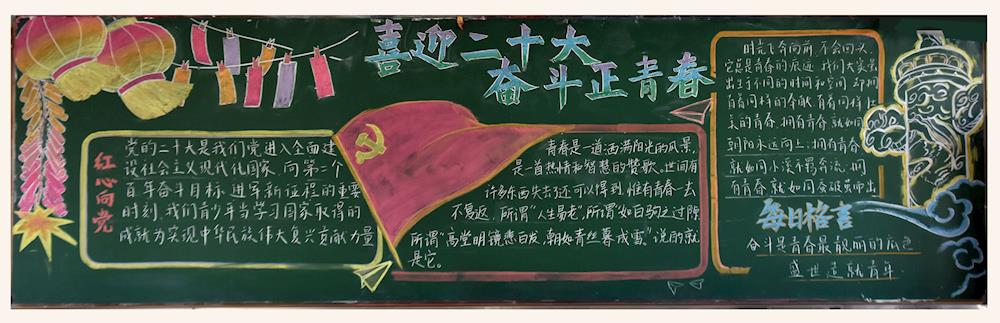 喜迎二十大
奋斗正青春
红心向党
党的二十大是我们党进入全面建
设社会主义现代化国家、向第二个
百年奋斗目标进军新征程的重要
时刻,我们青少年当学习国家取得的
成就为实现中华民族伟大复兴贡献力量
青春是一道洒满阳光的风景,
是一首热情和智慧的赞歌。世间有
许多东西失去了还可以得到,惟有青春一去
不复返。所谓“人生易老”,所谓“如白驹之过隙
所谓“高堂明镜悲白发,朝如青丝暮成雪”说的就
是它。
时光飞奔向前,不会回头,
它总是青春的底迹。我们大家
出生于不同的时间和空间,却拥
有着同样的奋斗,有着同样
美的青春,拥有青春,就如同
朝阳永远向上;拥有青春
就如同小溪有爱奔流;拥
有青春,就如同金破茧冲出
每日格言
奋斗是青春最靓丽的底色
盛世造就青年